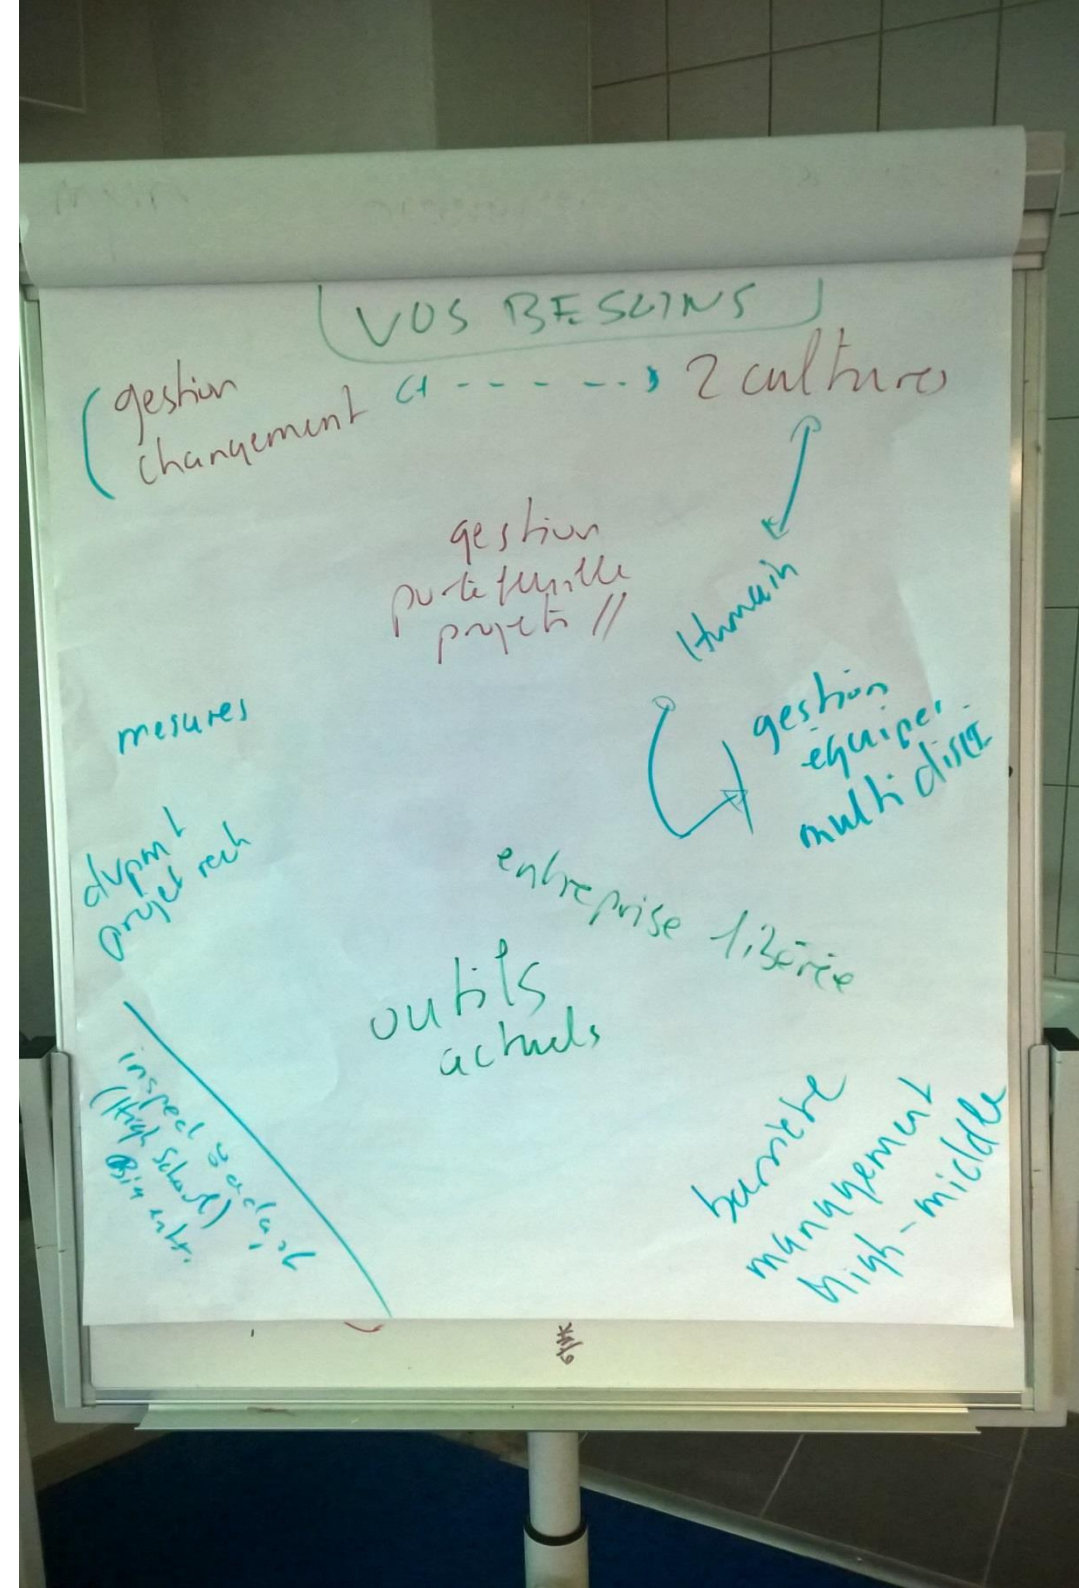 VOS BESOINS
gestion
changement
2 cultures
gestion
portefeuille
projets //
Humain
gestion
équipe
multi disci
mesures
dvpmt
projet rech
entreprise libérée
outils
actuels
inspect
(High School)
Big entr.
barrière
management
high-middle